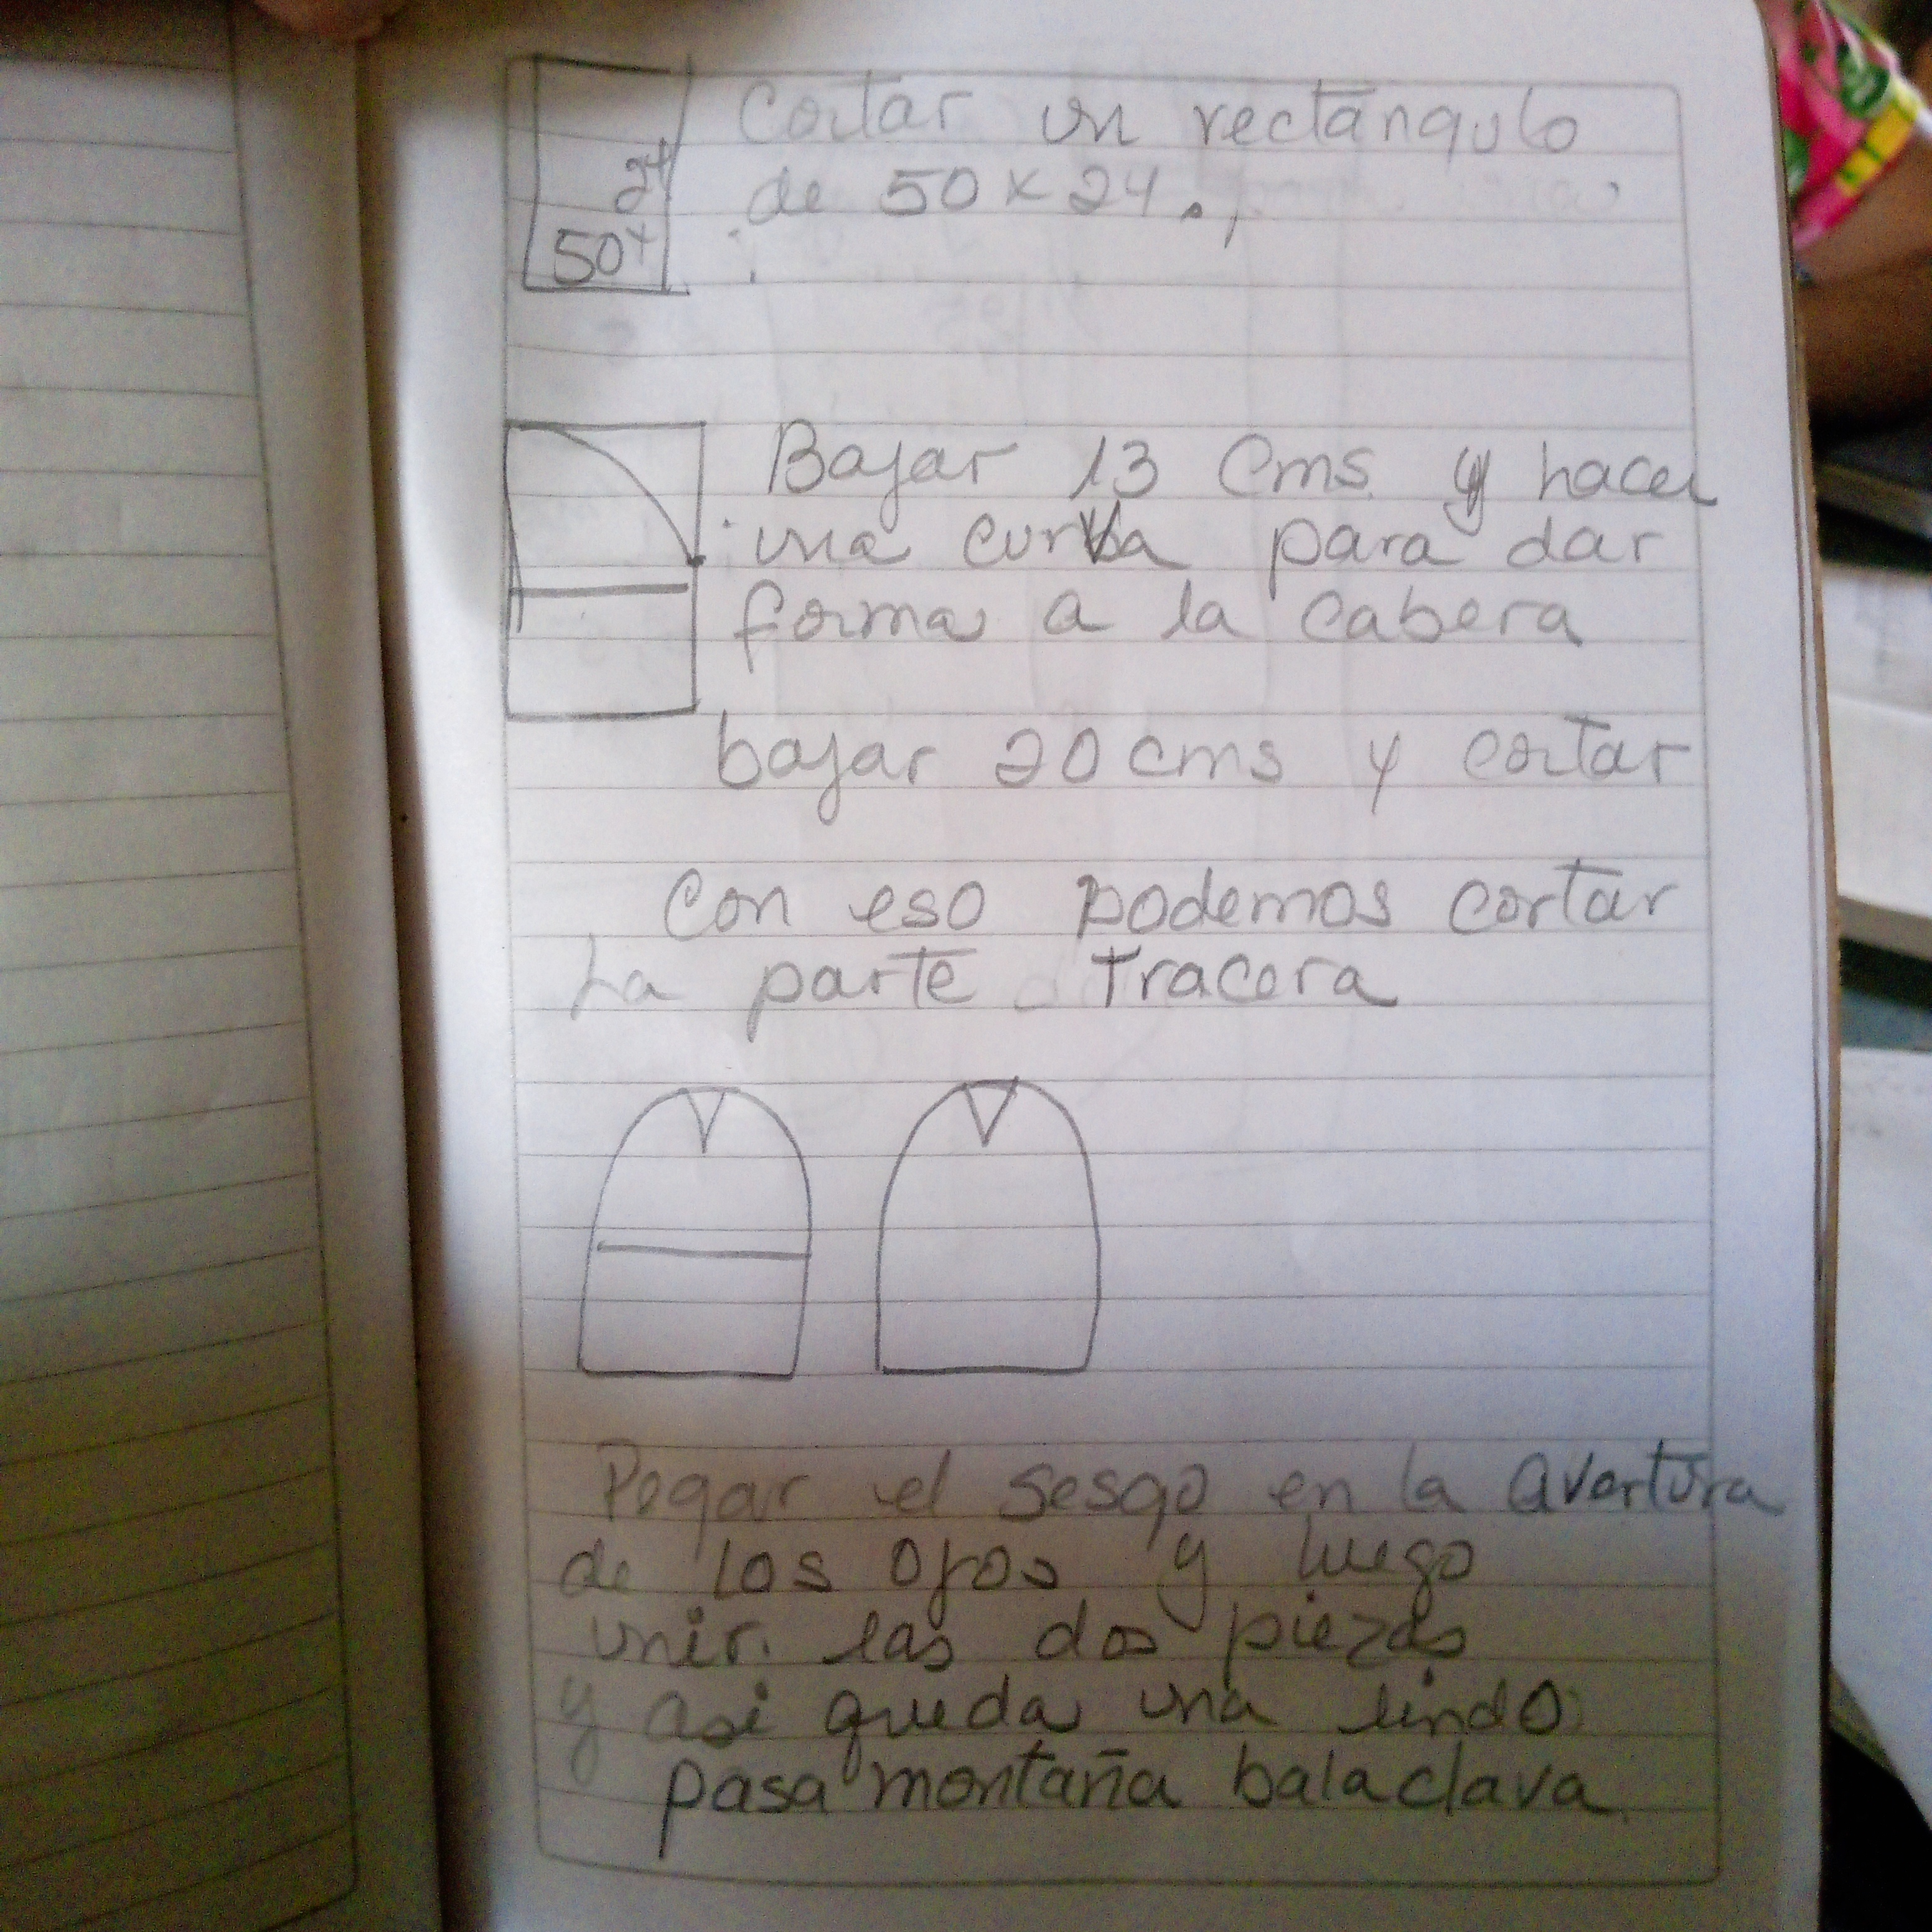 Cortar un rectángulo
24
de 50 x 24.
50
Bajar 13 cms y hacer
una curva para dar
forma a la cabera
bajar 20 cms y cortar
Con eso podemos cortar
La parte tracera
Pegar el sesgo en la avertura
de los ojos y luego
unir. las dos piezas
y asi queda una lindo
pasa montaña balaclava